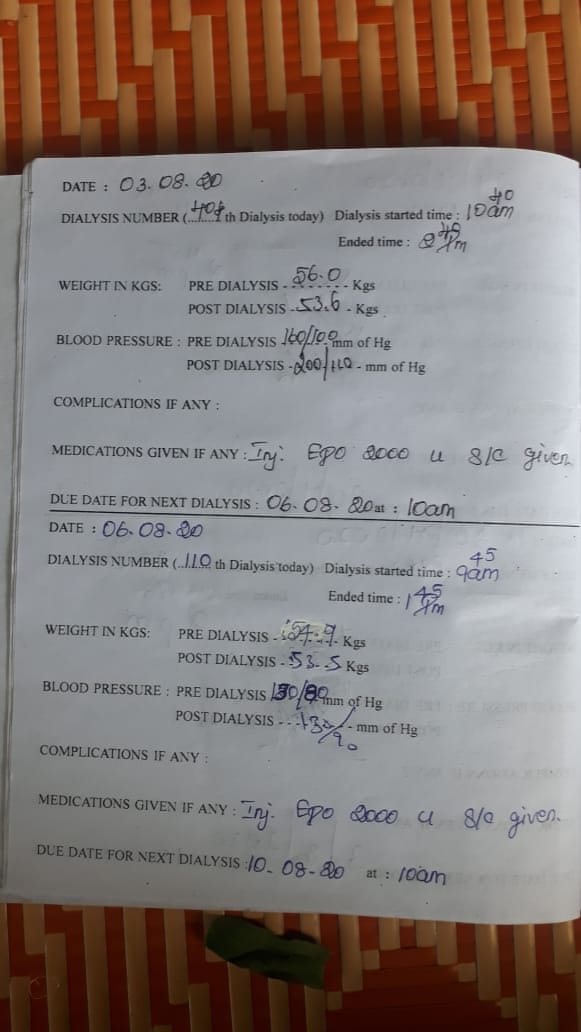 DATE : 03.08.20
DIALYSIS NUMBER (.........th Dialysis today) Dialysis started time : 10 40 am
Ended time : 2 40 pm
WEIGHT IN KGS: PRE DIALYSIS - 56.0 - Kgs
POST DIALYSIS - 53.6 - Kgs
BLOOD PRESSURE : PRE DIALYSIS 160/100 mm of Hg
POST DIALYSIS - 200/110 - mm of Hg
COMPLICATIONS IF ANY :
MEDICATIONS GIVEN IF ANY : Inj. Epo 2000 u S/C given
DUE DATE FOR NEXT DIALYSIS : 06.08.20 at : 10am
DATE : 06.08.20
DIALYSIS NUMBER (..110 th Dialysis today) Dialysis started time : 9 45 am
Ended time : 1 45 pm
WEIGHT IN KGS: PRE DIALYSIS - 54.9 - Kgs
POST DIALYSIS - 53.5 Kgs
BLOOD PRESSURE : PRE DIALYSIS mm of Hg
POST DIALYSIS - 130/90 - mm of Hg
COMPLICATIONS IF ANY :
MEDICATIONS GIVEN IF ANY : Inj. Epo 2000 u S/C given.
DUE DATE FOR NEXT DIALYSIS : 10.08.20 at : 10am